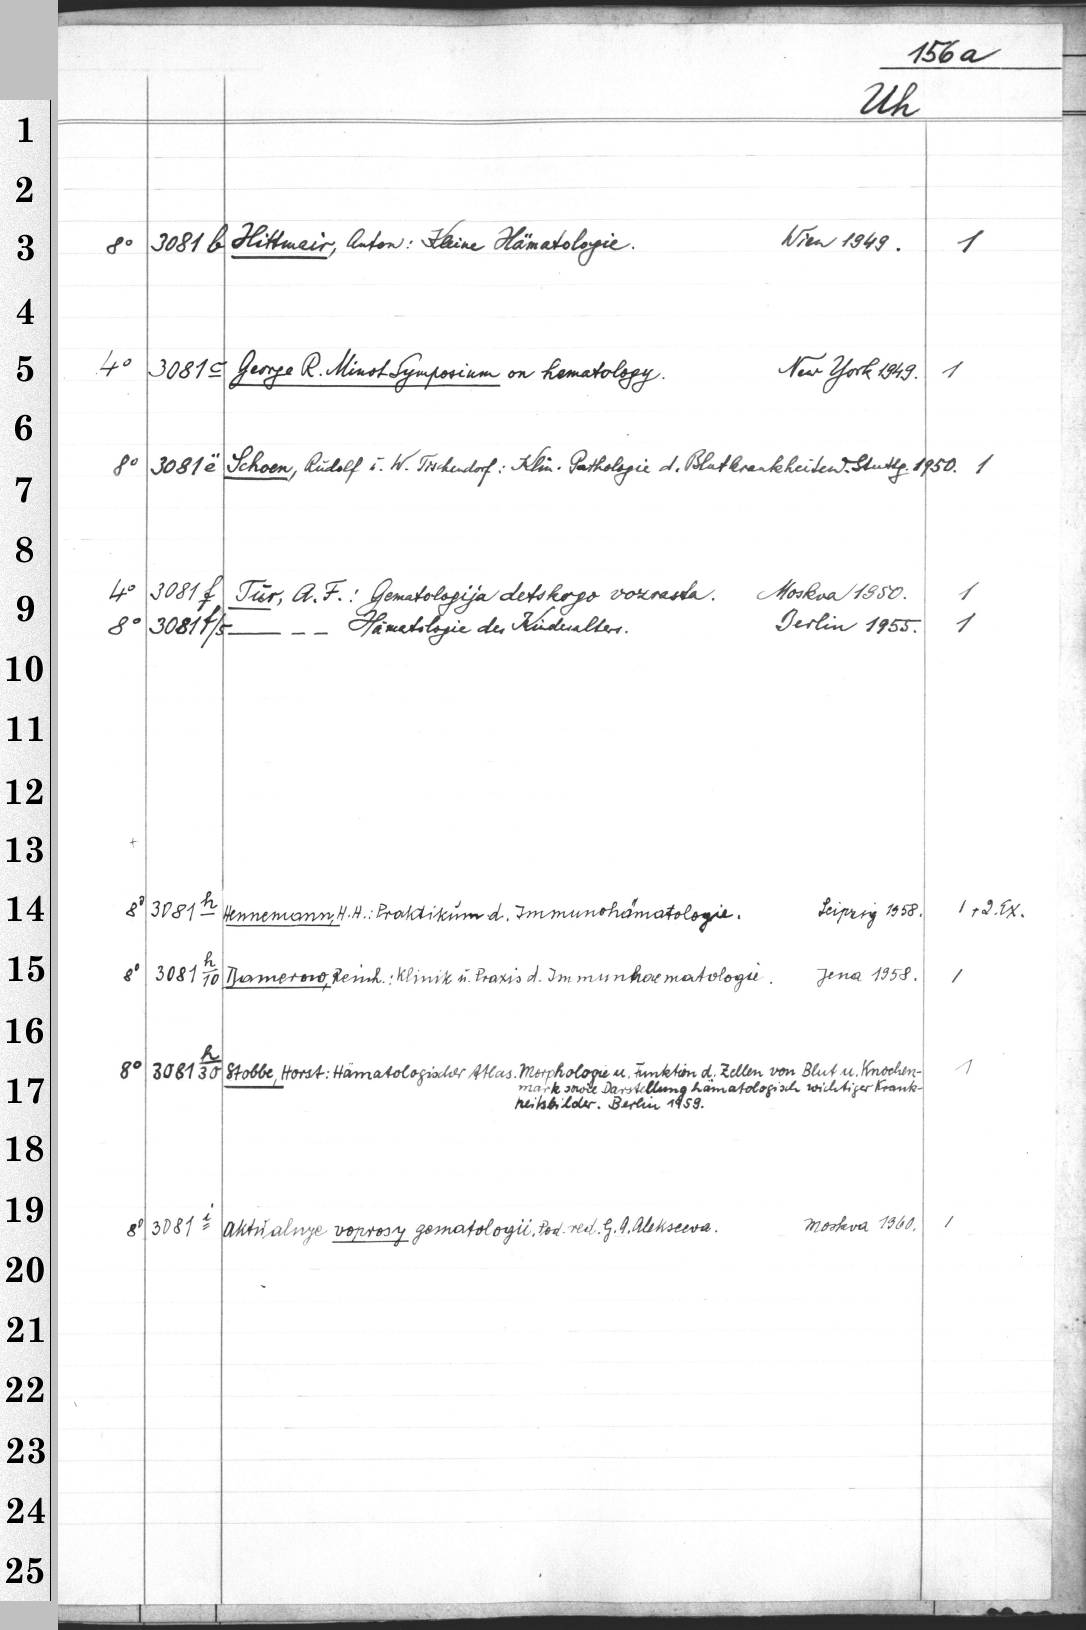 156a
Uh
1
2
3 8° 3081 b Hittmair, Anton: Kleine Hämatologie. Wien 1949. 1
4
5 4° 3081 c George R. Minot Symposium on hematology. New York 1949. 1
6
8° 3081 ë Schoen, Rudolf u. W. Tischendorf: Klin. Pathologie d. Blutkrankheiten. Stuttg. 1950. 1
7
8
4° 3081 f Tur, A. F.: Gematologija detskogo vozrasta. Moskva 1950. 1
9
8° 3081 f/5 ——— – – Hämatologie des Kindesalters. Berlin 1955. 1
10
11
12
13
14 8° 3081 h Hennemann, H. H.: Praktikum d. Immunohämatologie. Leipzig 1958. 1 + 2. Ex.
15 8° 3081 h/10 Damerow, Reinh.: Klinik u. Praxis d. Immunhaematologie. Jena 1958. 1
16
8° 3081 h/30 Stobbe, Horst: Hämatologischer Atlas. Morphologie u. Funktion d. Zellen von Blut u. Knochen- 1
17 mark sowie Darstellung hämatologisch wichtiger Krank-
heitsbilder. Berlin 1959.
18
19 8° 3081 i Aktualnye voprosy gematologii. Pod. red. G. A. Alekseeva. Moskva 1960. 1
20
21
22
23
24
25